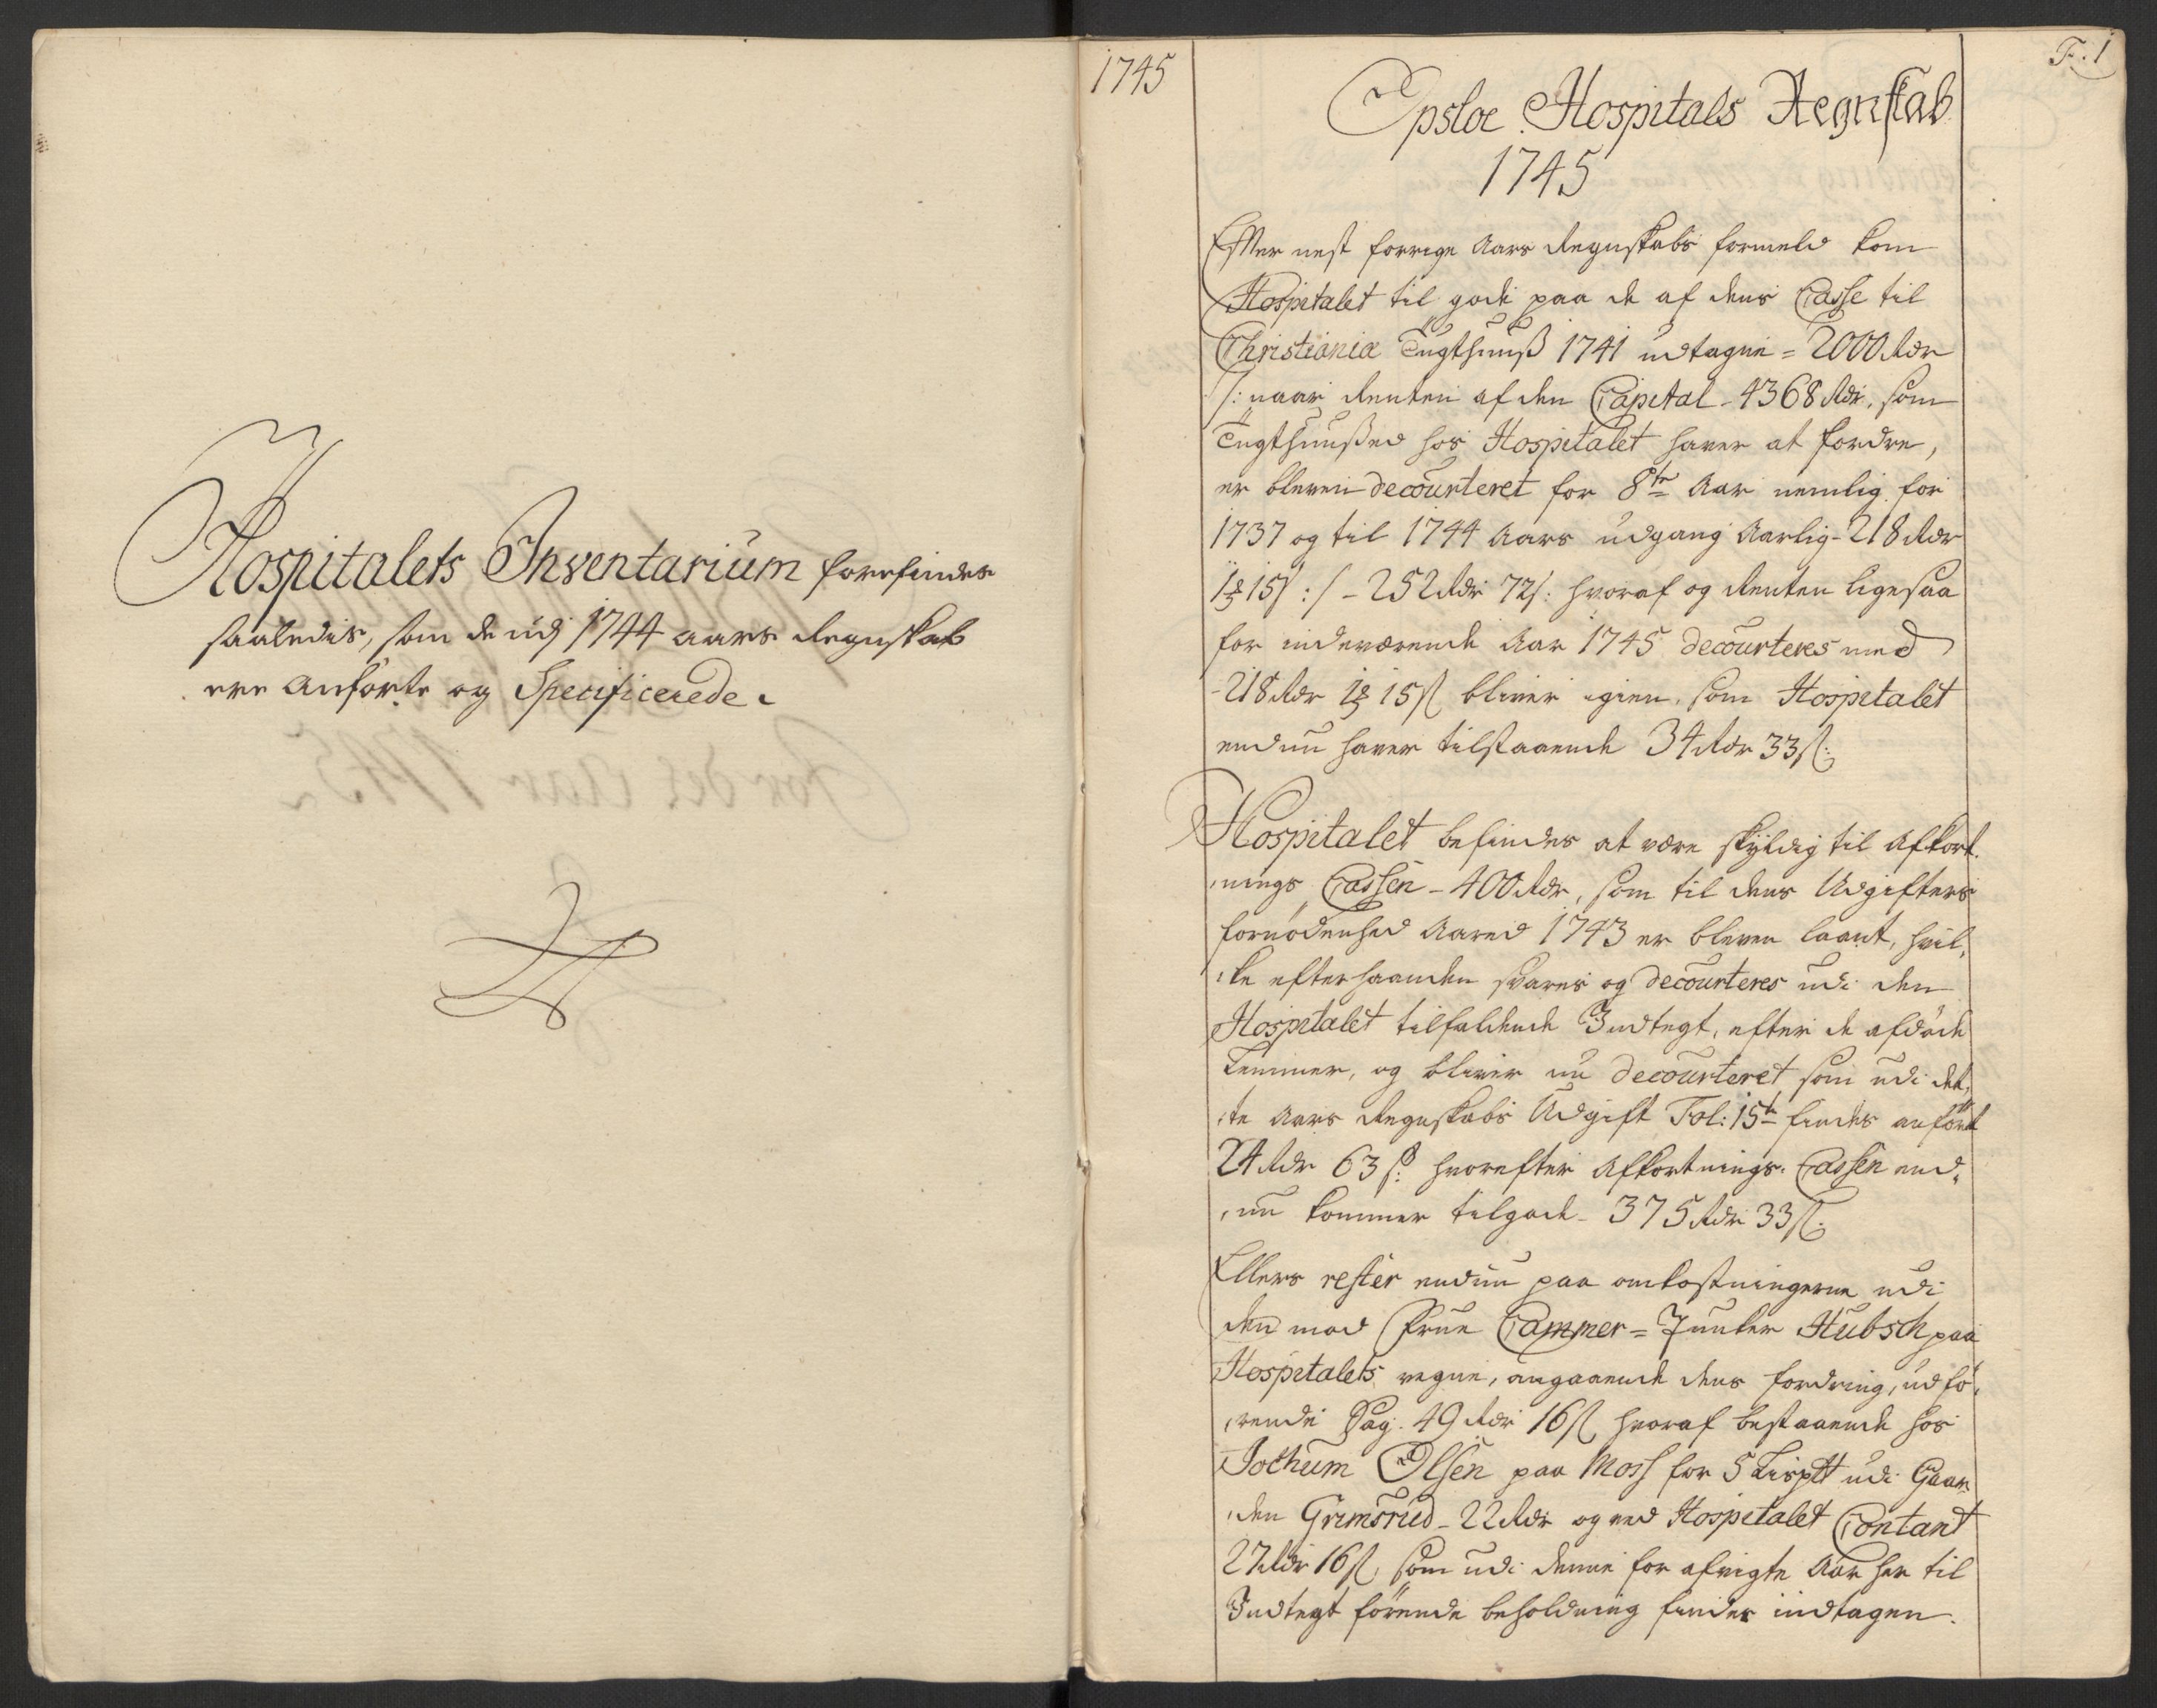 Hospitalets Inventarium forefindes
saaledis, som de udj 1744 aars Regnskab
ere anførte og Specificerede.
1745
F: 1
Opsloe Hospitals Regnskab
1745
Efter nest forrige Aars Regnskabs formeld kom
Hospitalet til gode paa de af dens Casse til
Christianiæ Tugthuuß 1741 udtagne = 2000 Rdr
/: naar Renten af den Capital - 4368 Rdr, som
Tugthuußed hos Hospitalet haver at fordre,
er bleven decourteret for 8te Aar nemlig for
1737 og til 1744 Aars udgang Aarlig - 218 Rdr
1 ꝑ 15 s :/ - 252 Rdr 72 s: hvoraf og Renten ligesaa
for indeværende Aar 1745 decourteres med
- 218 Rdr 1 ꝑ 15 s bliver igien, som Hospitalet
endnu haver tilstaaende 34 Rdr 33 s:
Hospitalet befindes at være skyldig til Afkort-
nings Cassen - 400 Rdr, som til dens Udgifters
fornødenhed Aared 1743 er bleven laant, hvil-
ke efterhaanden svares og decourteres udi den
Hospitalet tilfaldende Indtegt, efter de afdøde
Lemmer, og bliver nu decourteret som udi det-
te Aars Regnskabs Udgift Fol: 15te findes anført
24 Rdr 63 s: hvorefter Afkortnings Cassen end-
nu kommer tilgode - 375 Rdr 33 s:
Ellers rester endnu paa omkostningerne udi
den mod Frue Cammer = Junker Hübsch paa
Hospitalets vegne, angaaende dens fordring, udfø-
rende Sag. 49 Rdr 16 s hvoraf bestaaende hos
Jochum Olsen paa Moss for 5 Lispd udi Gaar-
den Grimsrud - 22 Rdr og ved Hospitalet Contant
27 Rdr 16 s, som udi denne for afvigte Aar her til
Indtegt førende beholdning findes indtagen.